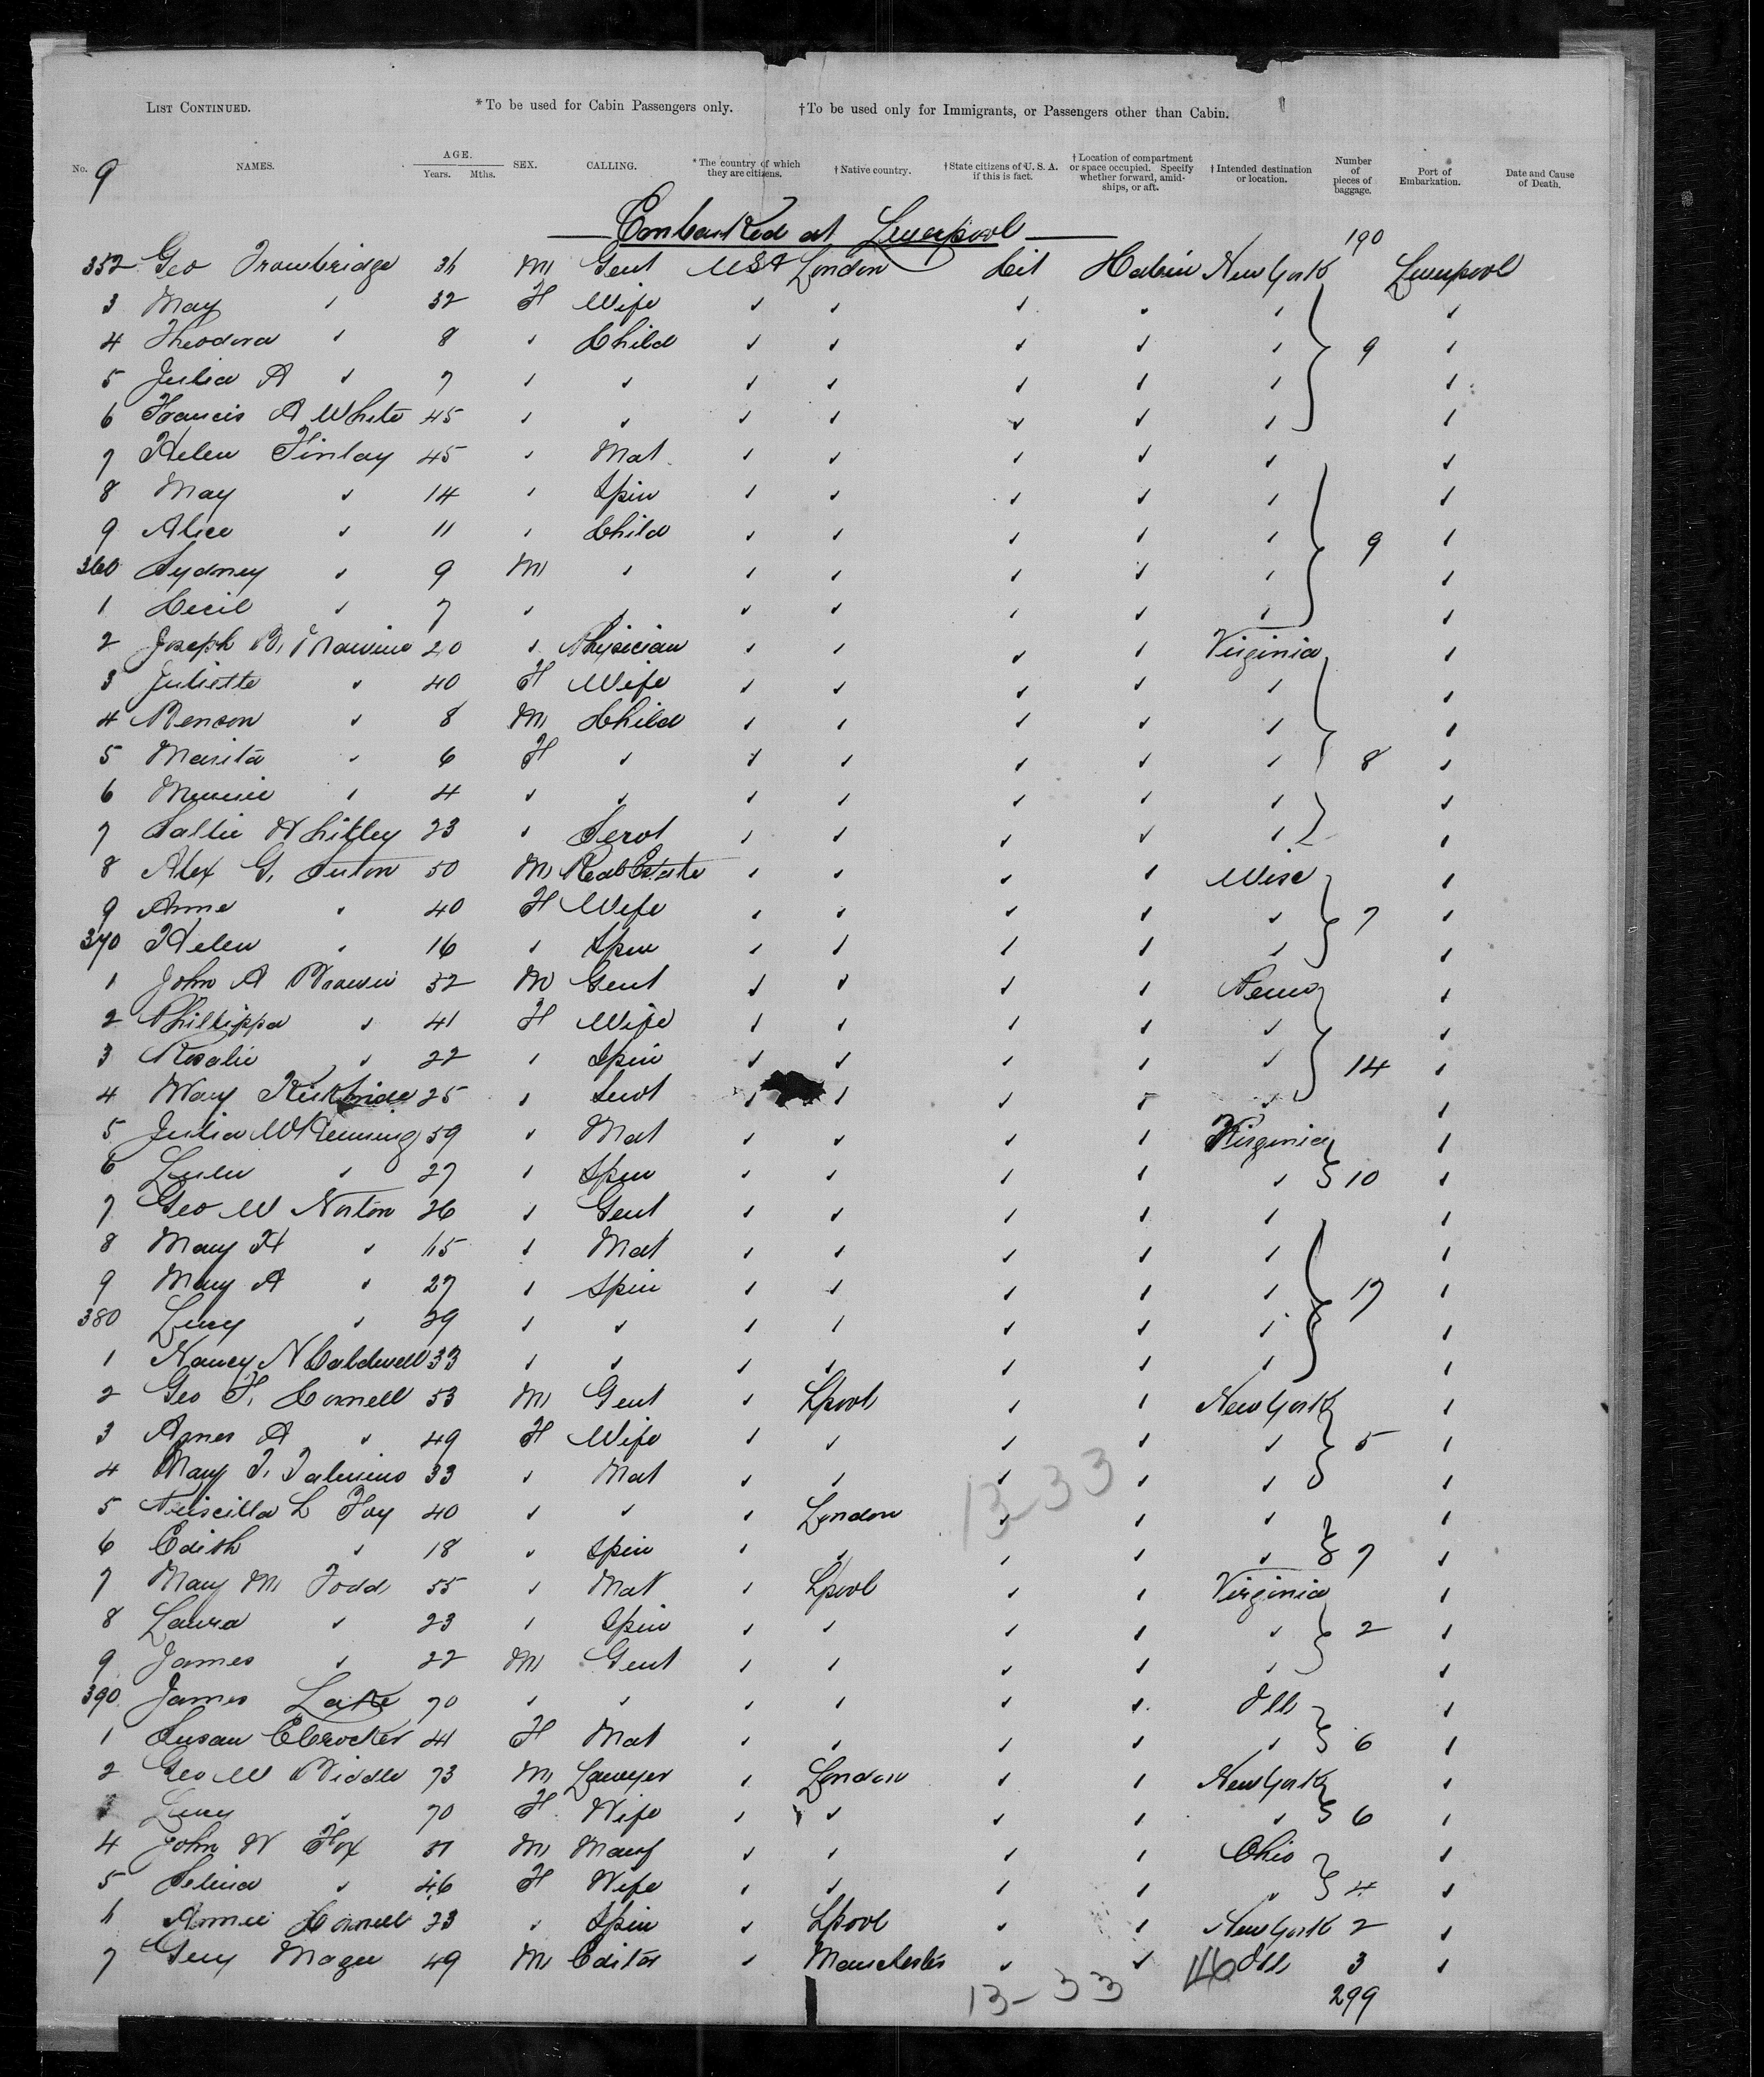 LIST CONTINUED. *To be used for Cabin Passengers only. †To be used only for Immigrants, or Passengers other than Cabin.
No. 9 NAMES. AGE. Years. Mths. SEX. CALLING. *The country of which they are citizens. †Native country. †State citizens of U. S. A. if this is fact. †Location of compartment or space occupied. Specify whether forward, amidships, or aft. †Intended destination or location. Number of pieces of baggage. Port of Embarkation. Date and Cause of Death.
Embarked at Liverpool
190
352 Geo Trowbridge M Gent USA London Cit New York Liverpool
3 May " 32 F Wife
4 Theodora " 8 " Child
5 Julia A " 7 " " 9
6 Francis A White 45 " "
7 Helen Finlay 45 " Mat
8 May " 14 " Spin
9 Alice " 11 " Child 9
360 Sydney " 9 M "
1 Cecil " 7 " "
2 Joseph B. " Physician Virginia
3 Juliette " 40 F Wife
4 Benson " 8 M Child
5 Marita " 6 F " 8
6 " 4 " "
7 Sallie Whitley 23 " Servt
8 Alex G. 50 M Real Estate Wisc
9 Anne " 40 F Wife 7
370 Helen " 16 " Spin
1 John A 52 M Gent Penn
2 Phillippa " 41 F Wife
3 Rosalie " 22 " Spin 14
4 Mary Kirkbride 25 " Servt
5 Julia W 59 " Mat Virginia
6 Lulu " 27 " Spin 10
7 Geo W Norton 26 " Gent
8 Mary H " " Mat
9 Mary A " 27 " Spin 17
380 Lucy " 29 " "
1 Nancy N Caldwell 33 " "
2 Geo F. Cornell 53 M Gent " Lpool New York
3 Agnes A " 49 F Wife 5
4 Mary T. 33 " Mat
5 Priscilla L Foy 40 " " London
13-33
6 Edith " 18 " Spin 7
7 Mary M Todd 55 " Mat Lpool Virginia
8 Laura " 23 " Spin 2
9 James " 22 M Gent
390 James Lake 70 " " Ills
1 Susan E Crocker 41 F Mat 6
2 Geo W Biddle 73 M Lawyer London New York
Lucy " 70 F Wife 6
4 John W Fox 51 M Manf Ohio
5 Selina " 46 F Wife 4
6 Annie Cornell 23 " Spin Lpool New York 2
7 Magee 49 M Editor Manchester Ills 3
13-33 299